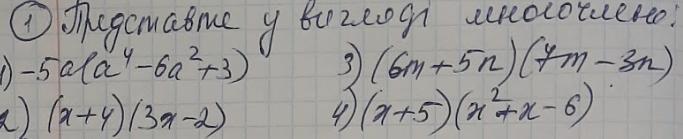 ① Представте у вигляді многочлена:
1) -5a(a⁴-6a²+3) 3) (6m+5n)(7m-3n)
2) (x+4)(3x-2) 4) (x+5)(x²+x-6)